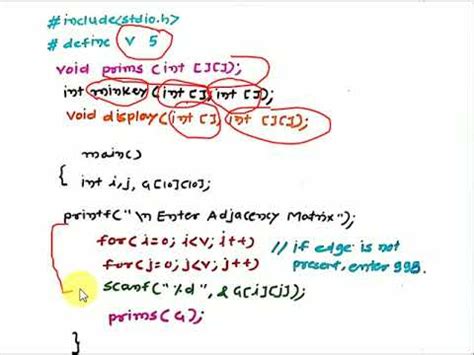 #include<stdio.h>
# define V 5
void prims (int [][]);
int minkey (int [], int []);
void display(int [], int [][]);
main()
{ int i,j, G[10][10];
printf("\n Enter Adjacency Matrix");
for(i=0; i<V; i++) // if edge is not
for(j=0; j<V; j++) present, enter 998.
scanf("%d", &G[i][j]);
prims(G);
}